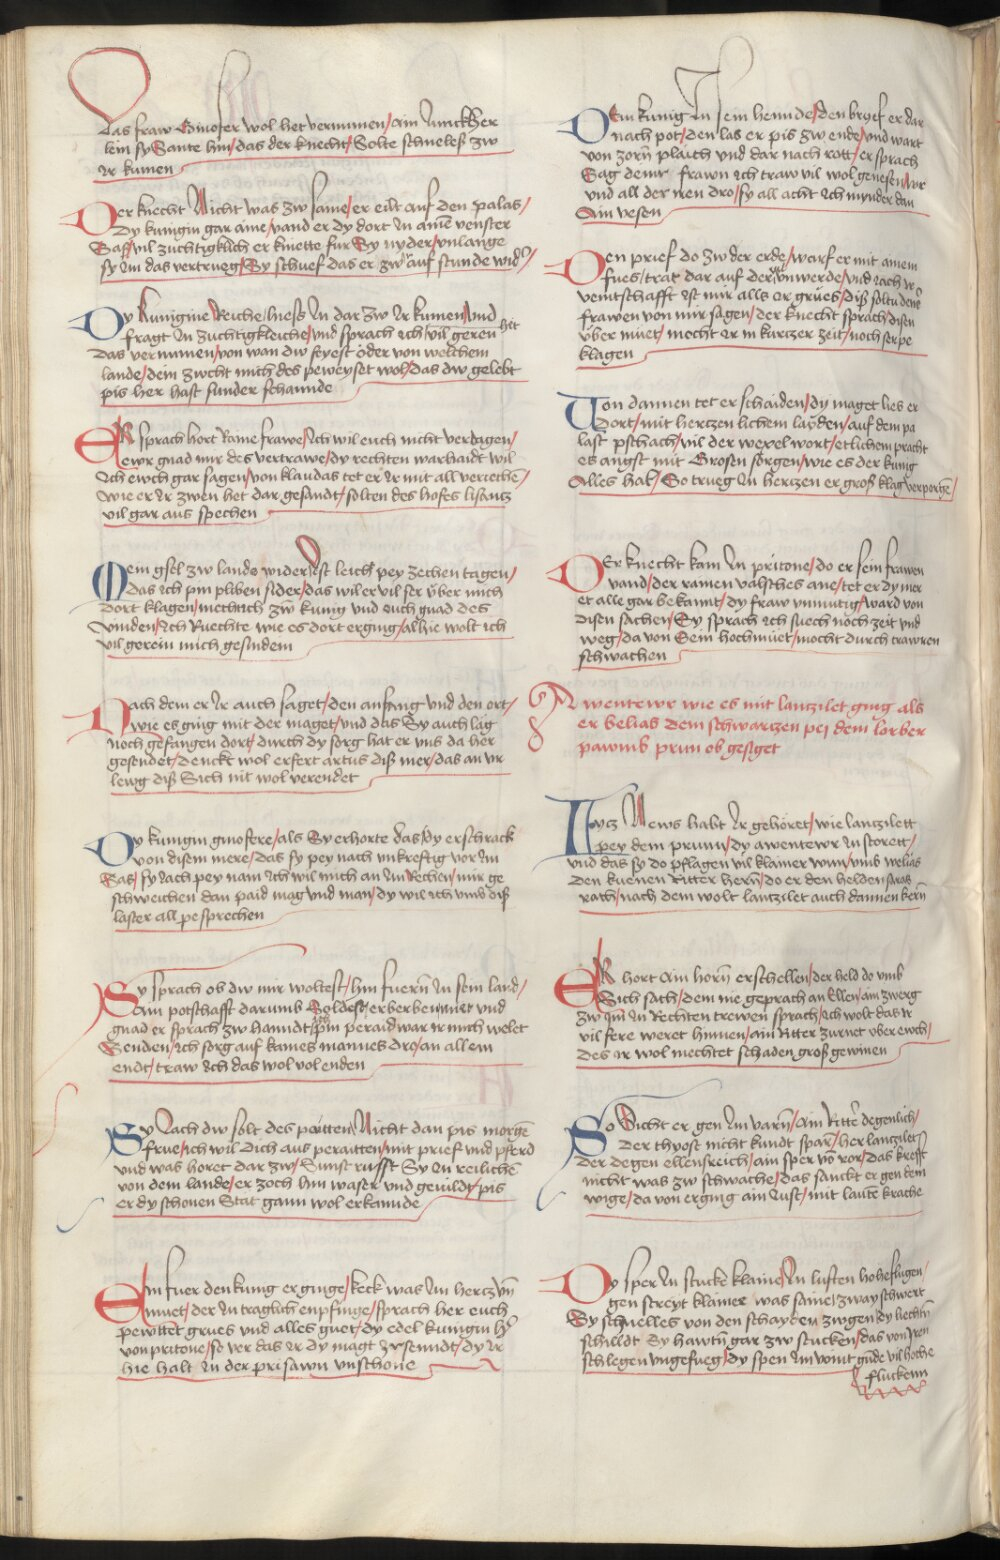 Das fraw Ginofer wol het vernumen / ain Junckher
kein sy Sante hin / das der knecht / Solte schnelss zw
ir kumen
Der knecht Nicht was zw saine / er eilt auf den palas /
Dy kunigin gar aine / vand er dy dort in aim venster
Sass / vil zuchtigklich er kniette fur Sy nyder / vnlange
sy im das vertrueg / Sy schuef das er zw ir auf stunde wider /
Dy kunigine Reiche / hiess in dar zw ir kumen / vnd
fragt in zuchtigkleiche / vnd sprach ich vil geren het
das vernumen / von wan dw seyest oder von welchem
lande / dein zwcht mich des peweyset wol / das dw gelebt
pis her hast sunder schannde
ER sprach hort Raine frawe / Ich wil euch nicht verdagen /
ewr gnad mir des vertrawe / dy rechten warhaidt wil
ich ewch gar sagen / von klaudas tet er ir mit all verieche /
wie er ir zwen het dar gesandt / solten des hofes lisantz
vil gar aus spechen
Mein gsel zw lande wider / Ist leicht pey zechen tagen /
Das ich pin pliben sider / das wil er vil ser uber mich
dort klagen / mecht ich zw kunig vnd euch gnad des
vinden / ich Ruechte wie es dort erging / alhie wolt ich
vil gerein mich gesindem
Nach dem er ir auch saget / den anfang vnd den ort /
wie es ging mit der maget / vnd das Sy auch lag
noch gefangen dort / durch dy sorg hat er vns da her
gesendet / denckt wol erfert artus diss mer / das an vr
leug diss Sich nit wol verendet
Dy kunigin ginofere / als Sy erhorte das / dy erschrack
von disem mere / das sy pey nach vnkreftig vor im
Sas / sy iach pey nam ich wil mich an im Rechen / mir ge
schweichen dan paid mag vnd man / dy wil ich vmb diss
laster all pesprechen
Sy sprach ob dw mir woltest / hin fuern in sein land /
Ain potschafft darumb Soldest / erberben miet vnd
gnad er sprach zw hanndt / ich pin peraid war ir mich welet
Senden / ich sorg auf kaines mannes dro / an allem
endt / traw ich das wol volenden
Sy Iach dw solt des paitten / Nicht dan pis morgen
frue / ich wil Dich aus peraitten / mit prief vnd pferd
vnd was horet dar zw / Sunst rufft Sy in reilichen
von dem lande / er zoch hin waser vnd gewildt / pis
er dy schonen Stat gann wol erkannde
Ein fuer den kunig er ginge / keck was im hertz vnd
muet / der in traglich enpfinge / sprach her euch
pewttet grues vnd alles guet / dy edel kunigin her
von pritone / so ver das ir dy magt ir senndt / dy ir
hie halt in der prisawn vnschone
Dem kunig in sein hennde / den brief er dar
nach pot / den las er pis zw ende / vnd wart
von zorn plaich vnd dar nach rott / er sprach
Sag deinr frawn ich traw vil wol genesen / vor
vnd all der iren dro / sy all acht ich mynder dan
Ain vesen
Den prief do zw der erde / warf er mit ainem
fues / trat dar auf der vnwerde / vnd iach ir
veintschafft ist mir alls ir grues / diss soltu deiner
frawen von mir sagen / der knecht sprach / disen
uber muet / mecht ir in kurtzer zeit / noch ser pe
klagen
Von dannen tet er schaiden / dy maget lies er
dort / mit hertzen lichem layden / auf dem pa
last pschach / vil der wexel wort / etlichem pracht
es angst mit Grosen sorgen / wie es der kunig
Alles hal / So trueg in hertzen er gross klag verporgen /
DEr knecht kam in pritone / do er sein frawen
vand / der rainen valsches ane / tet er dy mer
er alle gar bekannt / dy fraw vnmutig / ward von
disen sachen / Sy sprach ich suech noch zeit vnd
weg / da von Sein hochmuet / mocht durch trawren
schwachen
Awentewr wie es mit lantzilet ging als
er belias dem schwartzen pei dem lorber
pawmb prun ob gesiget
Nwcz News habt ir gehoret / wie lantzilett
pey dem prunn / dy awentewr in storett /
vnd das sy do pflagen vil klainer wun / vmb welias
den kuenen Ritter hern / do er den helden stras
rath / nach dem wolt lantzilet auch dannen kern
ER hort ain horn erschellen / der held do vmb
Sich sach / dem nie geprach an Ellen / ain zwerg
zw im in Rechten trewen sprach / ich wolt das ir
vil fere weret hinnen / ain Ritter zurnet uber ewch /
Des ir wol mechtet schaden gross gewinen
So Sicht er gen im varn / ain Ritter degenlich /
Der thyost nicht kundt sparn / her lantzilet
der degen ellensreich / ain sper von ror / das krefft
nicht was zw schwache / das sanckt er gen dem
wige / da von erging ain Iust / mit lautem krache
Dy sper in stucke klaine / in luften hohe flugen /
gen streyt klaines was saine / zway schwert
Sy schnelles von den schayden zwgen / dy liechten
schilldt Sy hawtn gar zw stucken / das von iren
schlegen vngefueg / dy spen im wint gunde vil hoche
fluckenn